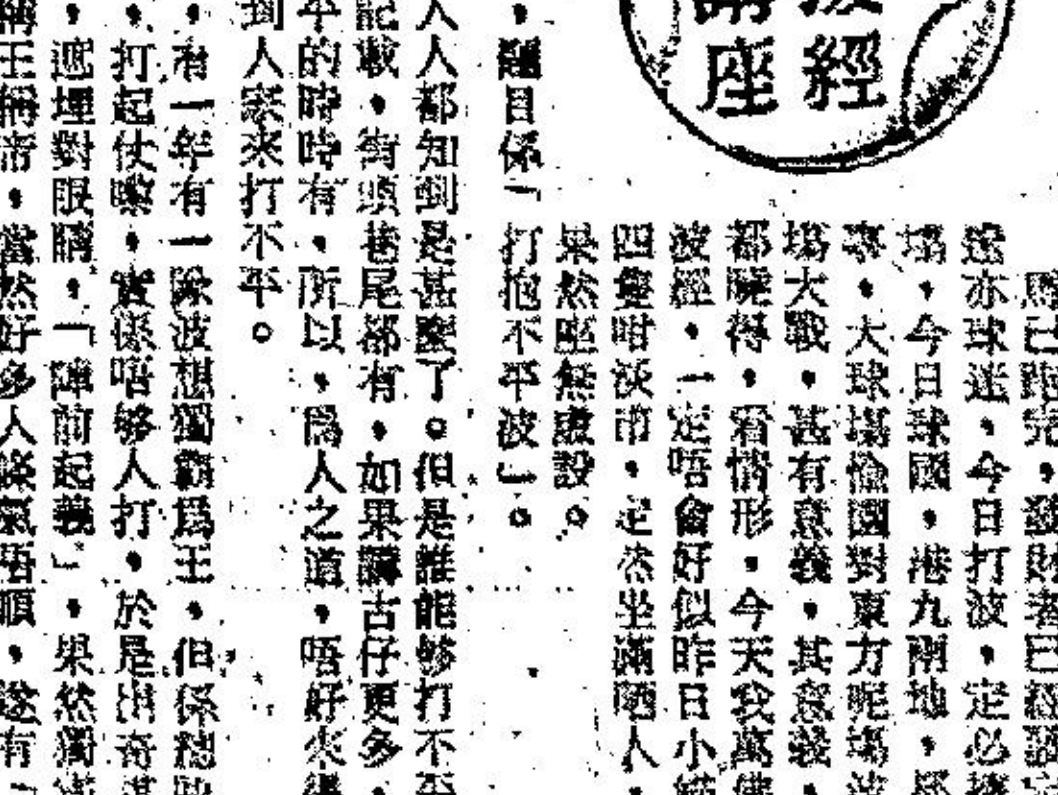 波經
講座
馬已跑完,發財者已經
迷亦球迷,今日打波,定必擠
塲,今日球國,港九兩地,
事,大球塲愉園對東方呢塲波
塲大戰,甚有意義,其意義
都曉得,看情形,今天我萬
波經,一定唔會好似昨日小貓
四隻咁淡市,定然坐滿晒人,
果然座無虛設。
,題目係「打抱不平波」。
人人都知到是甚麼了。但是誰能够打不平
記載,街頭巷尾都有,如果講古仔更多,
平的時時有,所以,爲人之道,唔好
到人家來打不平。
,有一年有一隊波想獨霸爲王,但係
,打起仗嚟,實係唔够人打,於是出奇謀
,遮埋對眼睛,「陣前起義」,果然獨
稱王稱帝,當然好多人條氣唔順,遂有「